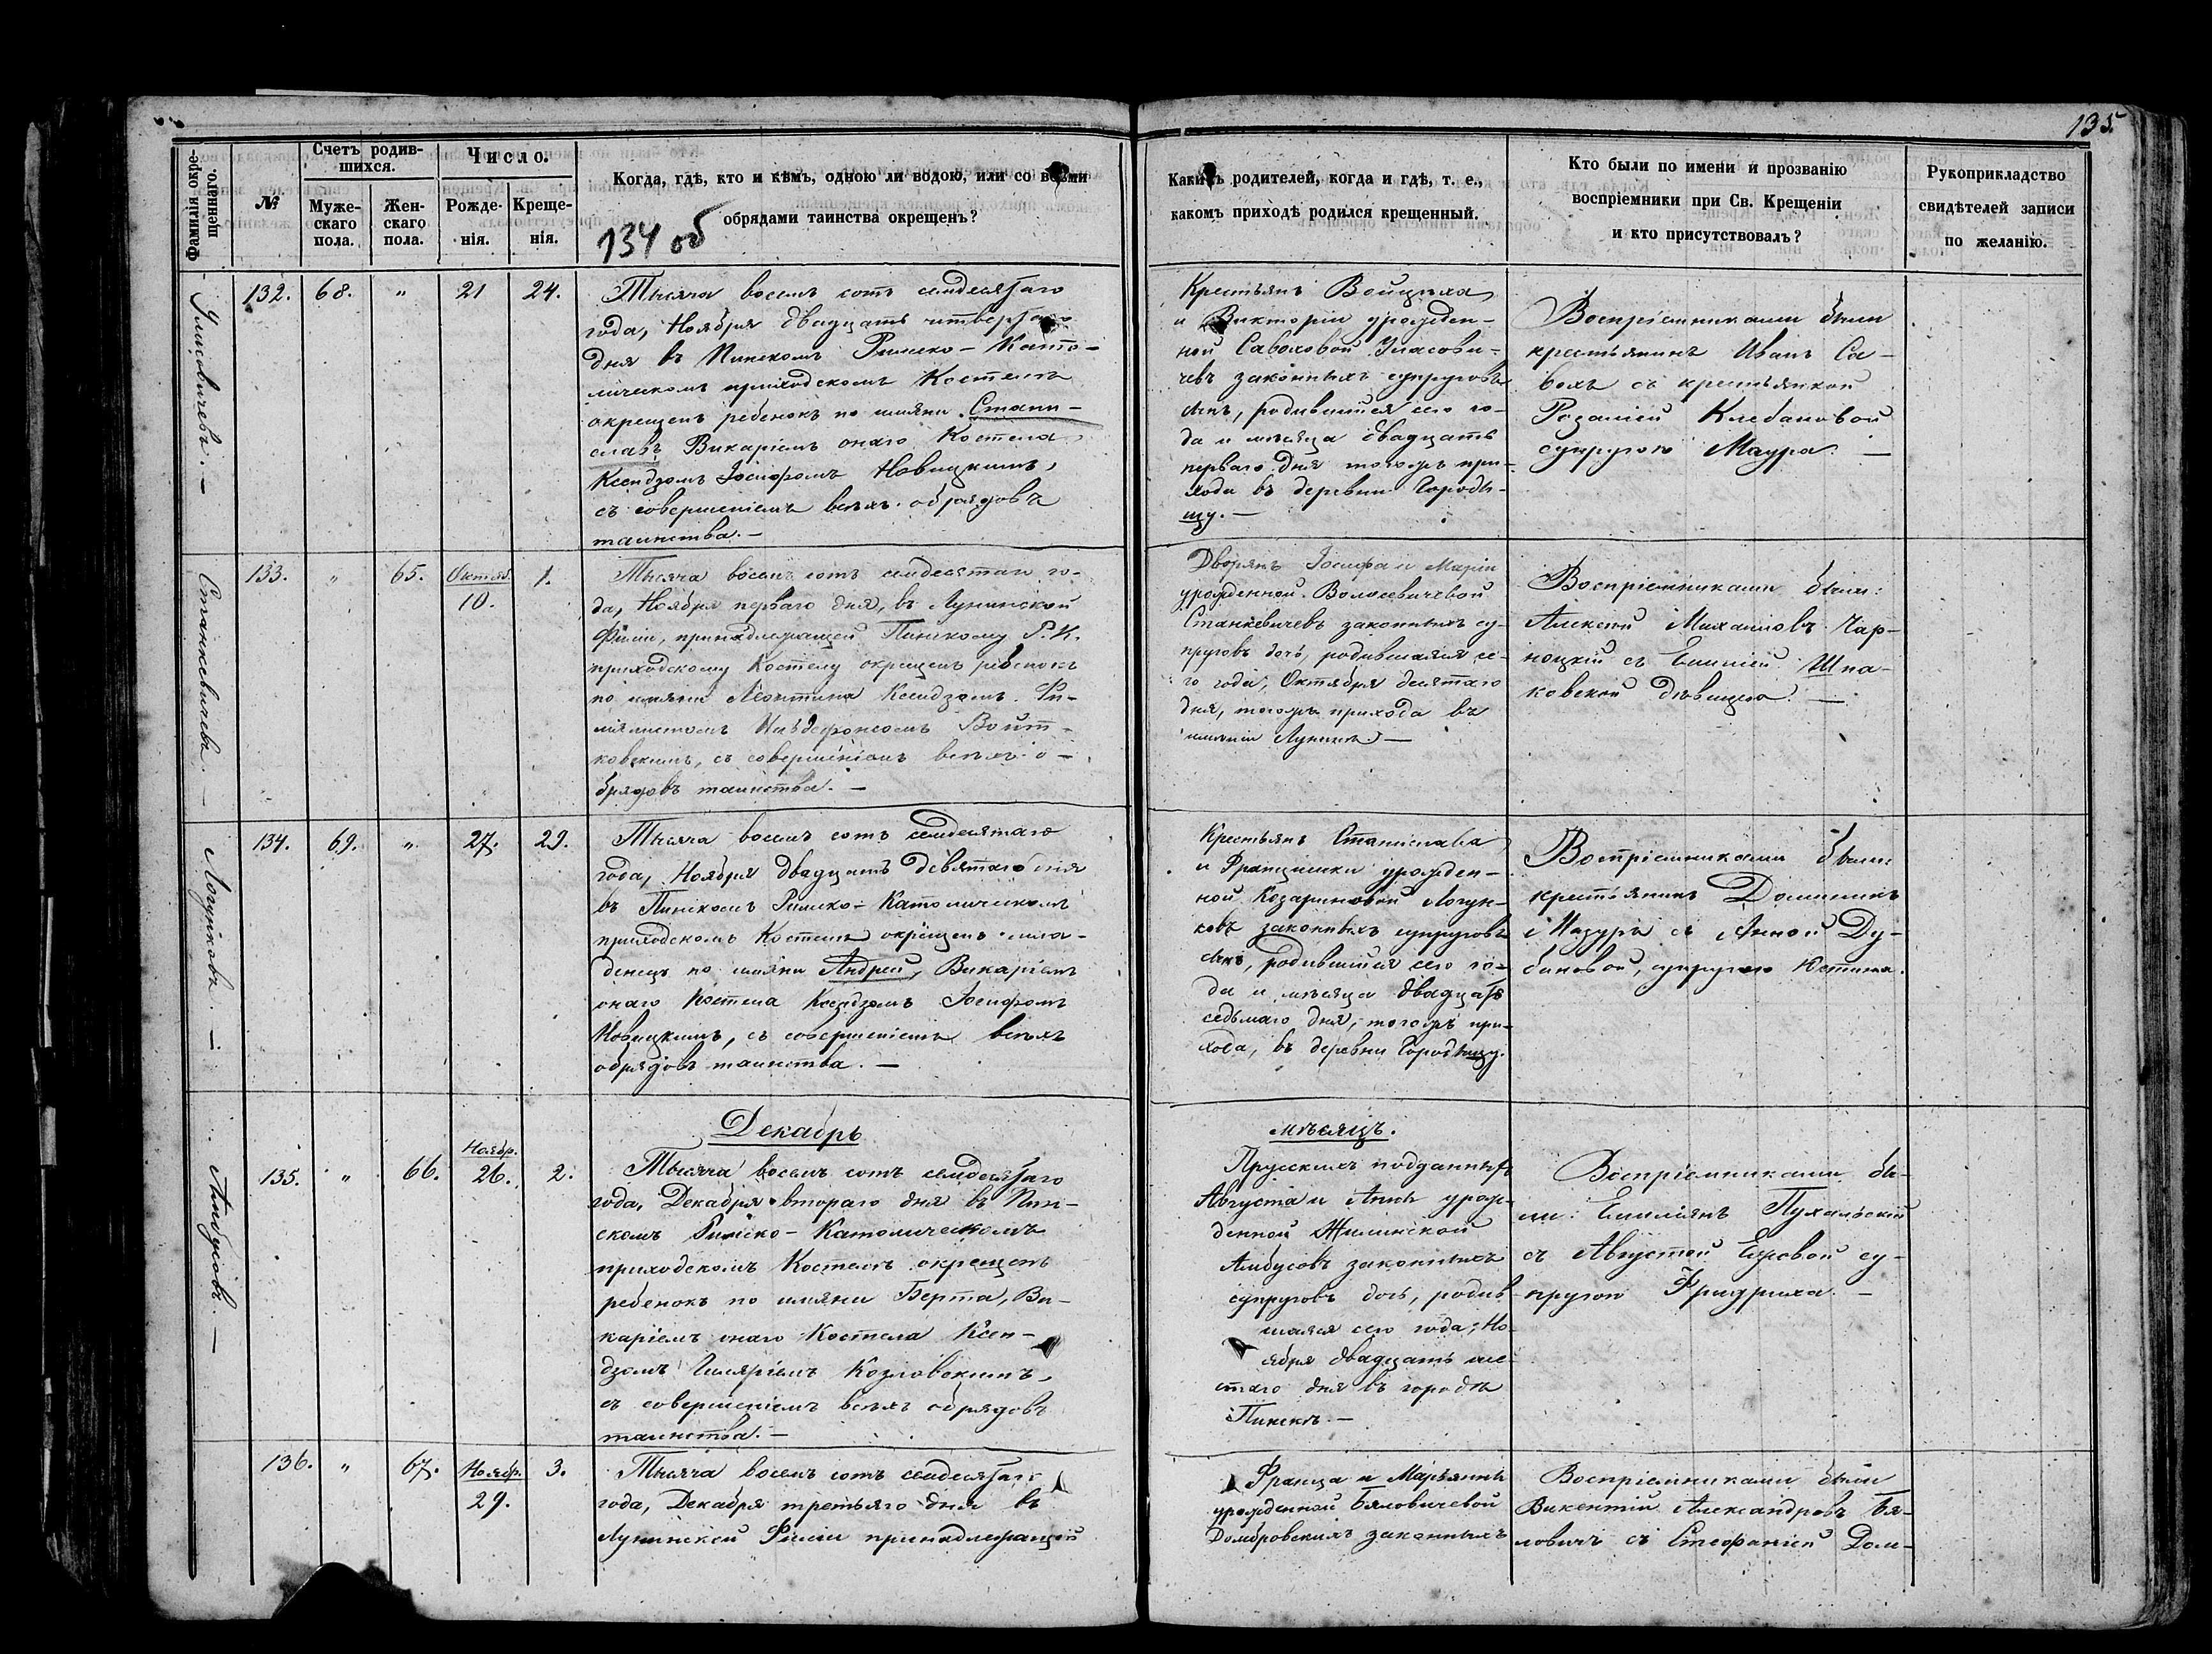 135.
Фамилія окре-
щеннаго.
№
Счетъ родив-
шихся.
Муже-
скаго
пола.
Жен-
скаго
пола.
Число.
Рожде-
нія.
Креще-
нія.
Когда, гдѣ, кто и кѣмъ, одною ли водою, или со всѣми
обрядами таинства окрещенъ?
134 об
Какихъ родителей, когда и гдѣ, т. е.,
какомъ приходѣ родился крещенный.
Кто были по имени и прозванію
воспріемники при Св. Крещеніи
и кто присутствовалъ?
Рукоприкладство
свидѣтелей записи
по желанію.
132. 68. " 21 24.
Тысяча восемь сотъ семдесятаго
года, Ноября двадцать четвертаго
дня въ Пинскомъ Римско-Като-
лическомъ приходскомъ Костелѣ
окрещенъ ребенокъ по имяни Стани-
славъ Викаріемъ онаго Костела
Ксендзомъ Іосифомъ Новицкимъ,
съ совершеніемъ всѣхъ обрядовъ
таинства. —
Крестьянъ Войцѣха
и Викторіи урожден-
ной Саваковой
законныхъ супруговъ
сынъ, родившійся сего го-
да и мѣсяца двадцать
перваго дня тогожъ при-
хода въ деревни Городи-
щу. —
Воспріемниками были
крестьянинъ Иванъ Са-
съ крестьянкой
Розаліей Клебановой
супругою Мазура. —
Станкевичевъ. —
133. " 65. Октяб. 10. 1.
Тысяча восемь сотъ семдесятаго го-
да, Ноября перваго дня, въ Лунинской
Филіи, принадлежащей Пинскому Р. К.
приходскому Костелу окрещенъ ребенокъ
по имяни Леонтина Ксендзомъ Фи-
ліялистомъ Ильдефонсомъ Войт-
ковскимъ, съ совершеніемъ всѣхъ о-
брядовъ таинства. —
Дворянъ Іосифа и Маріи
урожденной Волосевичевой
Станкевичевъ законныхъ су-
пруговъ дочь, родившаяся се-
го года, Октября десятаго
дня, тогожъ прихода въ
имѣніи Лунинѣ. —
Воспріемниками были:
Алексѣй Михайловъ Чар-
ноцкій съ Емиліей Шпа-
ковской дѣвицею. —
Логуновъ. —
134. 69. " 27. 29.
Тысяча восемь сотъ семдесятаго
года, Ноября двадцать девятаго дня
въ Пинскомъ Римско-Католическомъ
приходскомъ Костелѣ окрещенъ мла-
денецъ по имяни Андрей, Викаріемъ
онаго Костела Ксендзомъ Іосифомъ
Новицкимъ, съ совершеніемъ всѣхъ
обрядовъ таинства. —
Крестьянъ Станислава
и Францишки урожден-
ной Козариновой Логун-
ковъ законныхъ супруговъ
сынъ, родившійся сего го-
да и мѣсяца двадцать
седьмаго дня, тогожъ при-
хода, въ деревни Городищу.
Воспріемниками были:
крестьянинъ Доминикъ
Мазуръ съ Анной Ду-
бановой, супругою Юстина.
Амбусовъ. —
Декабрь
мѣсяцъ.
135. " 66. Ноябр. 26. 2.
Тысяча восемь сотъ семдесятаго
года, Декабря втораго дня въ Пин-
скомъ Римско-Католическомъ
приходскомъ Костелѣ окрещенъ
ребенокъ по имяни Берта, Ви-
каріемъ онаго Костела Ксен-
дзомъ Гиляріемъ Козловскимъ,
съ совершеніемъ всѣхъ обрядовъ
таинства. —
Прусскихъ подданныхъ
Августа и Анны урож-
денной Жилинской
Амбусовъ законныхъ
супруговъ дочь, родив-
шаяся сего года, Но-
ября двадцать ше-
стаго дня въ городѣ
Пинскѣ. —
Воспріемниками бы-
ли: Емиліянъ Пухальскій
съ Августой су-
пругою Фридриха. —
136. " 67. Ноябр. 29. 3.
Тысяча восемь сотъ семдесятаго
года, Декабря третьяго дня въ
Лунинской Филіи принадлежащей
Франца и Марьянны
урожденной Бяловичевой
Домбровскихъ законныхъ
Воспріемниками были
Викентій Александровъ Бя-
ловичъ съ Стефаніей Дом-